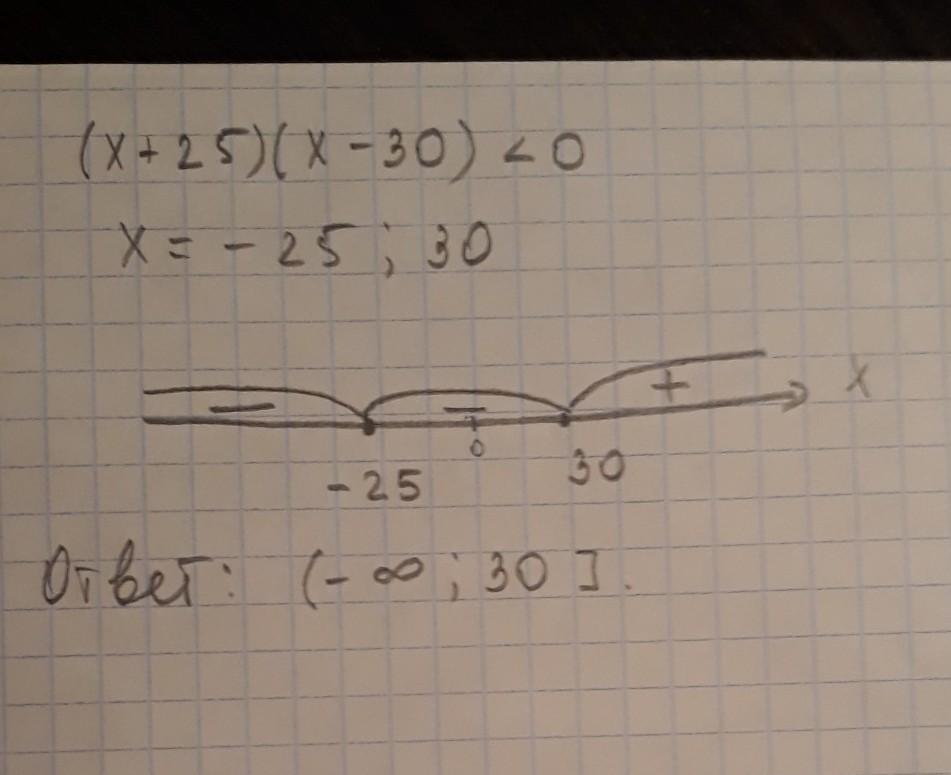 (x+25)(x-30)<0
x = -25; 30
− − + x
0
-25 30
Ответ: (-∞; 30].